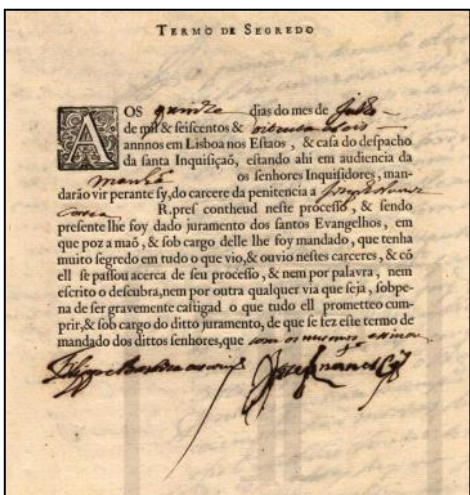 TERMO DE SEGREDO
AOS quinze dias do mes de Julho
de mil & seiscentos & oitenta dois
annnos em Lisboa nos Estaos, & casa do despacho
da santa Inquisição, estando ahi em audiencia da
manhã os senhores Inquisidores, man-
darão vir perante sy, do carcere da penitencia a Joseph
R. pres contheud neste processo, & sendo
presente lhe foy dado juramento dos santos Evangelhos, em
que poz a maõ, & sob cargo delle lhe foy mandado, que tenha
muito segredo em tudo o que vio, & ouvio nestes carceres, & có
ell se passou acerca de seu processo, & nem por palavra, nem
escrito o descubra, nem por outra qualquer via que seja, sobpe-
na de ser gravemente castigad o que tudo ell prometteo cum-
prir, & sob cargo do ditto juramento, de que se fez este termo de
mandado dos dittos senhores, que com os mesmos assinou